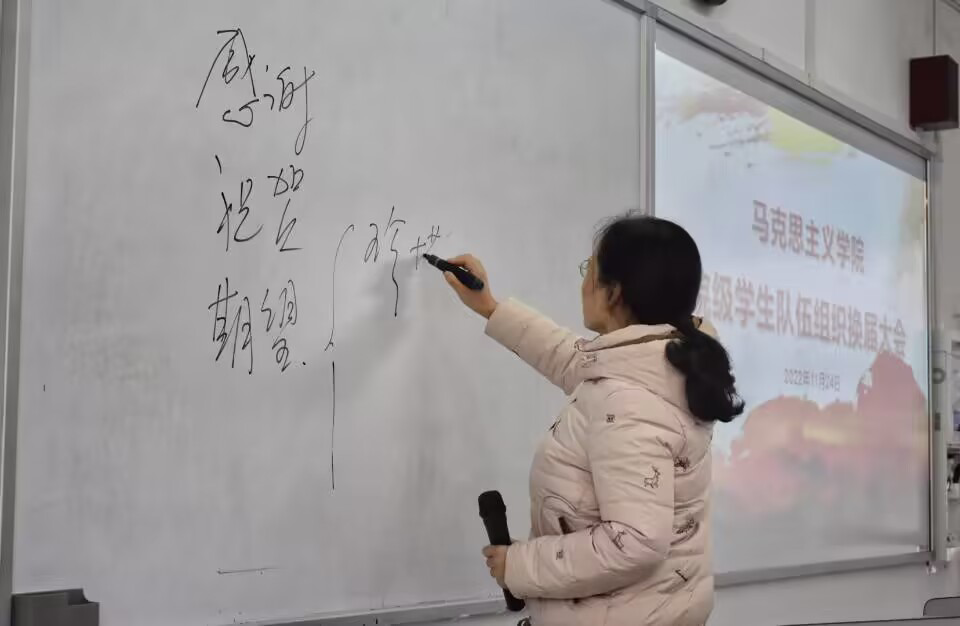 感谢
祝贺
期望
珍
马克思主义学院
级学生队伍组织换届大会
2022年11月24日